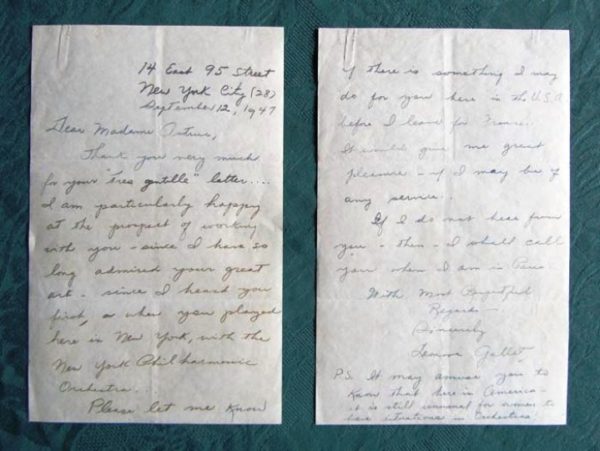 14 East 95 Street
New York City (28)
September 12, 1947
Dear Madame
Thank you very much
for your "tres gentille" letter....
I am particularly happy
at the prospect of working
with you - since I have so
long admired your great
art - since I heard you
first, when you played
here in New York, with the
New York Philharmonic
Orchestra.
Please let me know
if there is something I may
do for you here in the U.S.A.
before I leave for France..
It would give me great
pleasure - if I may be of
any service..
If I do not hear from
you - then - I shall call
you when I am in Paris.
With Most Respectful
Regards -
Sincerely
P.S. It may amuse you to
know that here in America -
it is still unusual for women to
have situations in Orchestras!